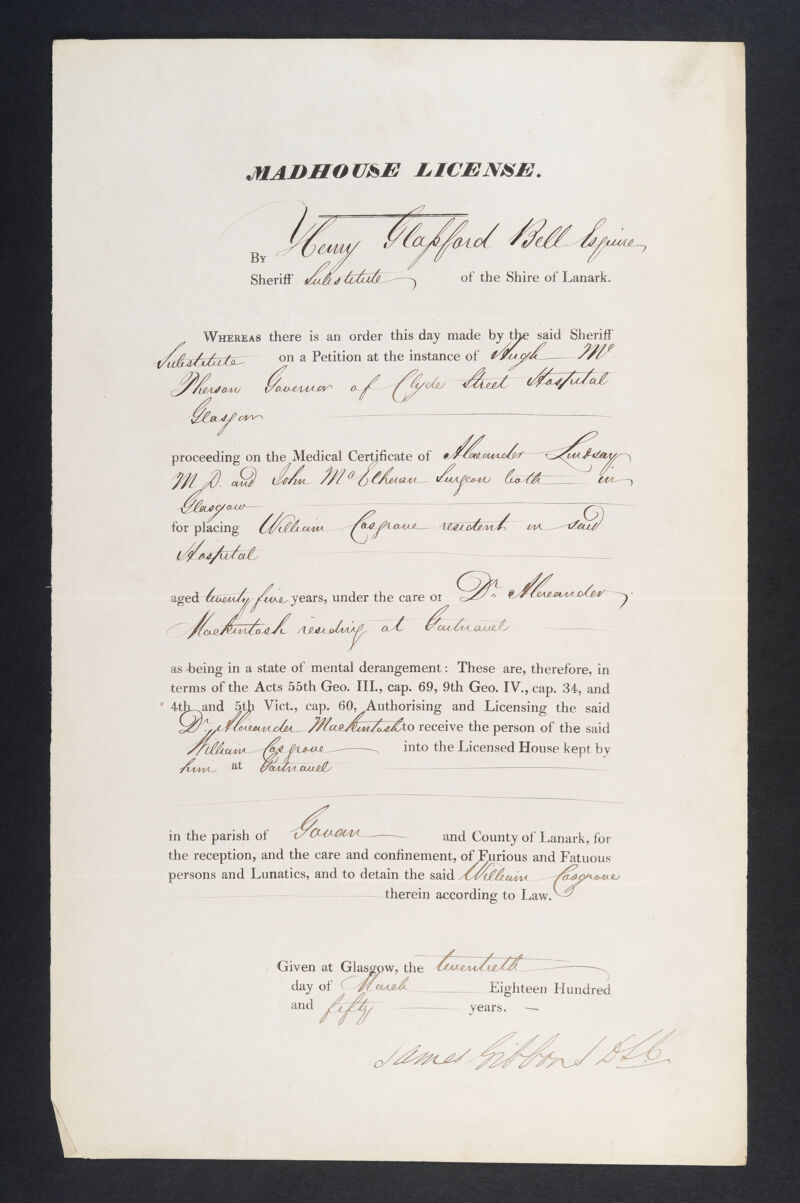 MADHOUSE LICENSE.
BY Henry Glassford Bell Esquire
Sheriff Substitute of the Shire of Lanark.
WHEREAS there is an order this day made by the said Sheriff
Substitute on a Petition at the instance of Hugh Mc
Pherson Governor of Clyde Street Hospital
Glasgow
proceeding on the Medical Certificate of Alexander Lindsay
M.D. and John McElheran Surgeon both in
Glasgow
for placing William Cosgrove resident in said
Hospital
aged twenty five years, under the care of Dr. Alexander
Mackintosh residing at Gartnavel
as being in a state of mental derangement: These are, therefore, in
terms of the Acts 55th Geo. III., cap. 69, 9th Geo. IV., cap. 34, and
4th and 5th Vict., cap. 60, Authorising and Licensing the said
Dr. Alexander Mackintosh to receive the person of the said
William Cosgrove into the Licensed House kept by
him at Gartnavel
in the parish of Govan and County of Lanark, for
the reception, and the care and confinement, of Furious and Fatuous
persons and Lunatics, and to detain the said William Cosgrove
therein according to Law.
Given at Glasgow, the twentieth
day of March Eighteen Hundred
and fifty years.
James Gibbons